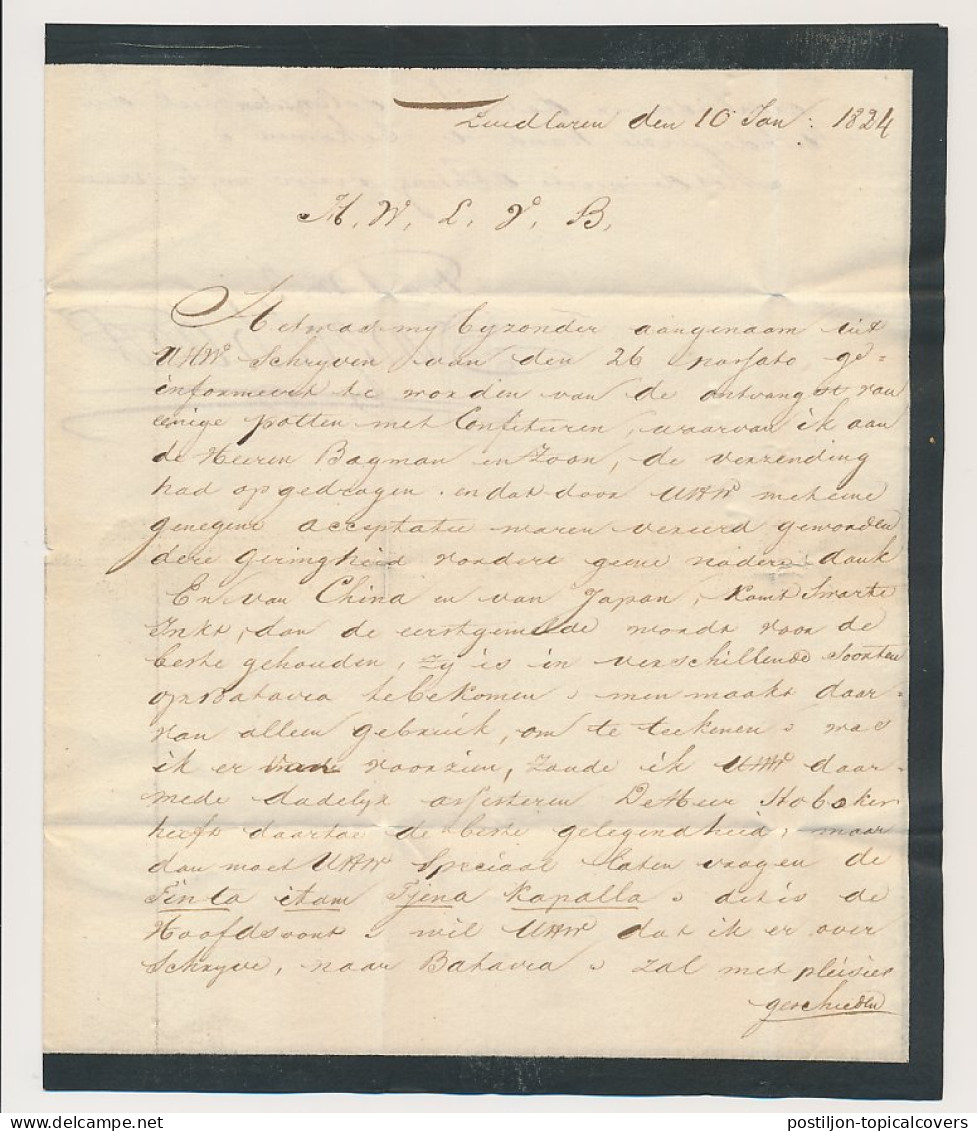 Zuidlaren den 10 Jan: 1824
H, W, L, V, B,
Het was my byzonder aangenaam uit
UHW Schryven van den 26 passato ge=
informeert te worden van de ontvangst van
eenige potten met Confituren, waarvan ik aan
de Heeren Bagman en Zoon, de verzending
had opgedragen. en dat door UHW met eene
genegene acceptatie waren vereerd geworden
dere geringheid vordert geene nadere dank
En van China en van Japan, komt Swarte
Inkt, dan de eerstgemelde wordt voor de
beste gehouden, zy is in verschillende Soorten
op Batavia te bekomen, men maakt daar=
van alleen gebruik, om te teekenen, was
ik er voorzien, zoude ik UHW daar=
mede dadelyk assisteren De Heer Hoboken
heeft daartoe de beste gelegendheid, maar
dan moet UHW Speciaal laten vragen de
Tinta itam Tjena Kapalla, dit is de
Hoofdsoort, wil UHW dat ik er over
Schryve, naar Batavia, zal met pleisier
geschieden
postiljon-topicalcovers